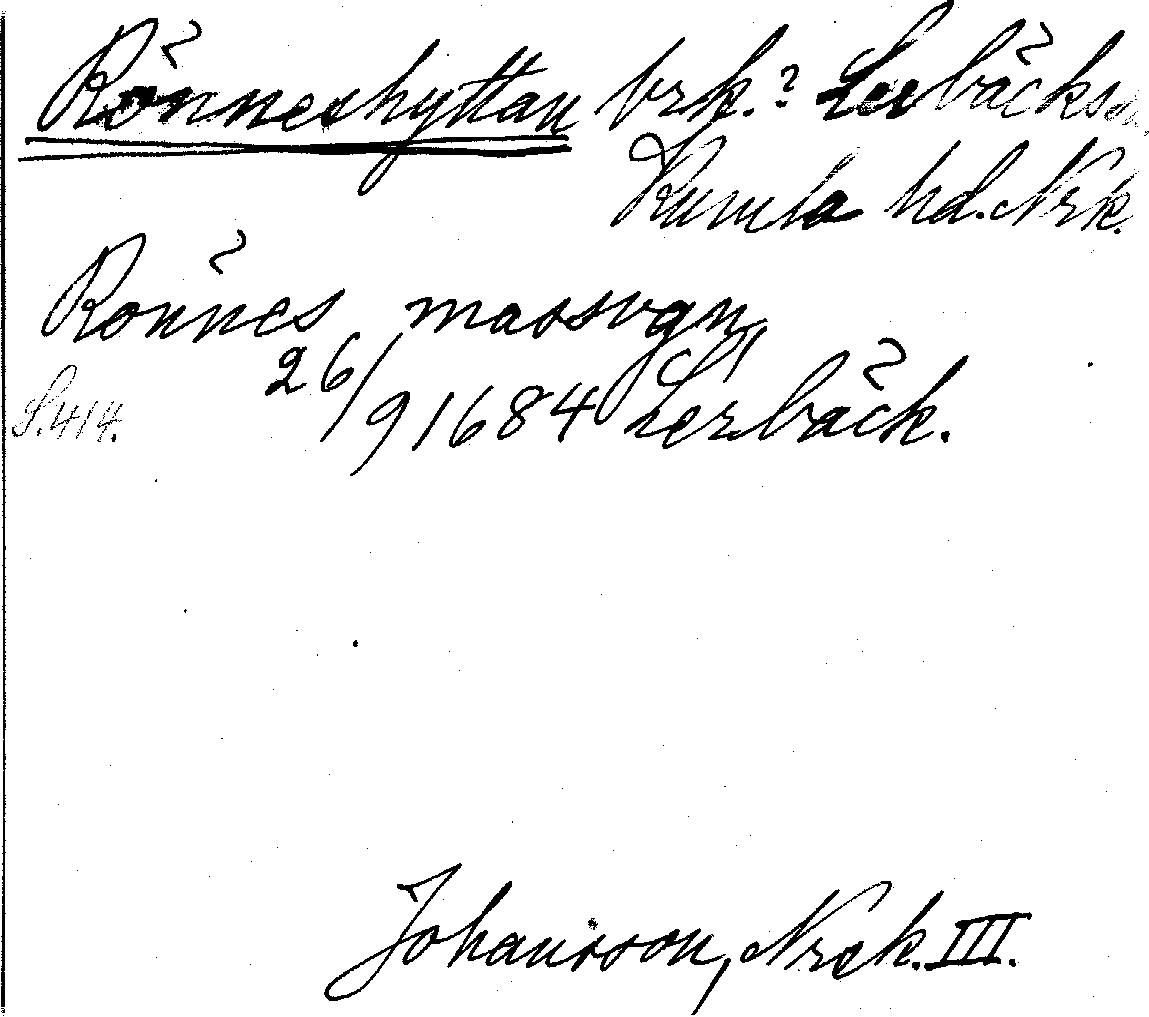 Rönneshyttan brk.? Lerbäcks sn.
Kumla hd. Nrk.
Rönnes massvgn,
26/9 1684 Lerbäck.
S. 414.
Johansson, Nrck. III.